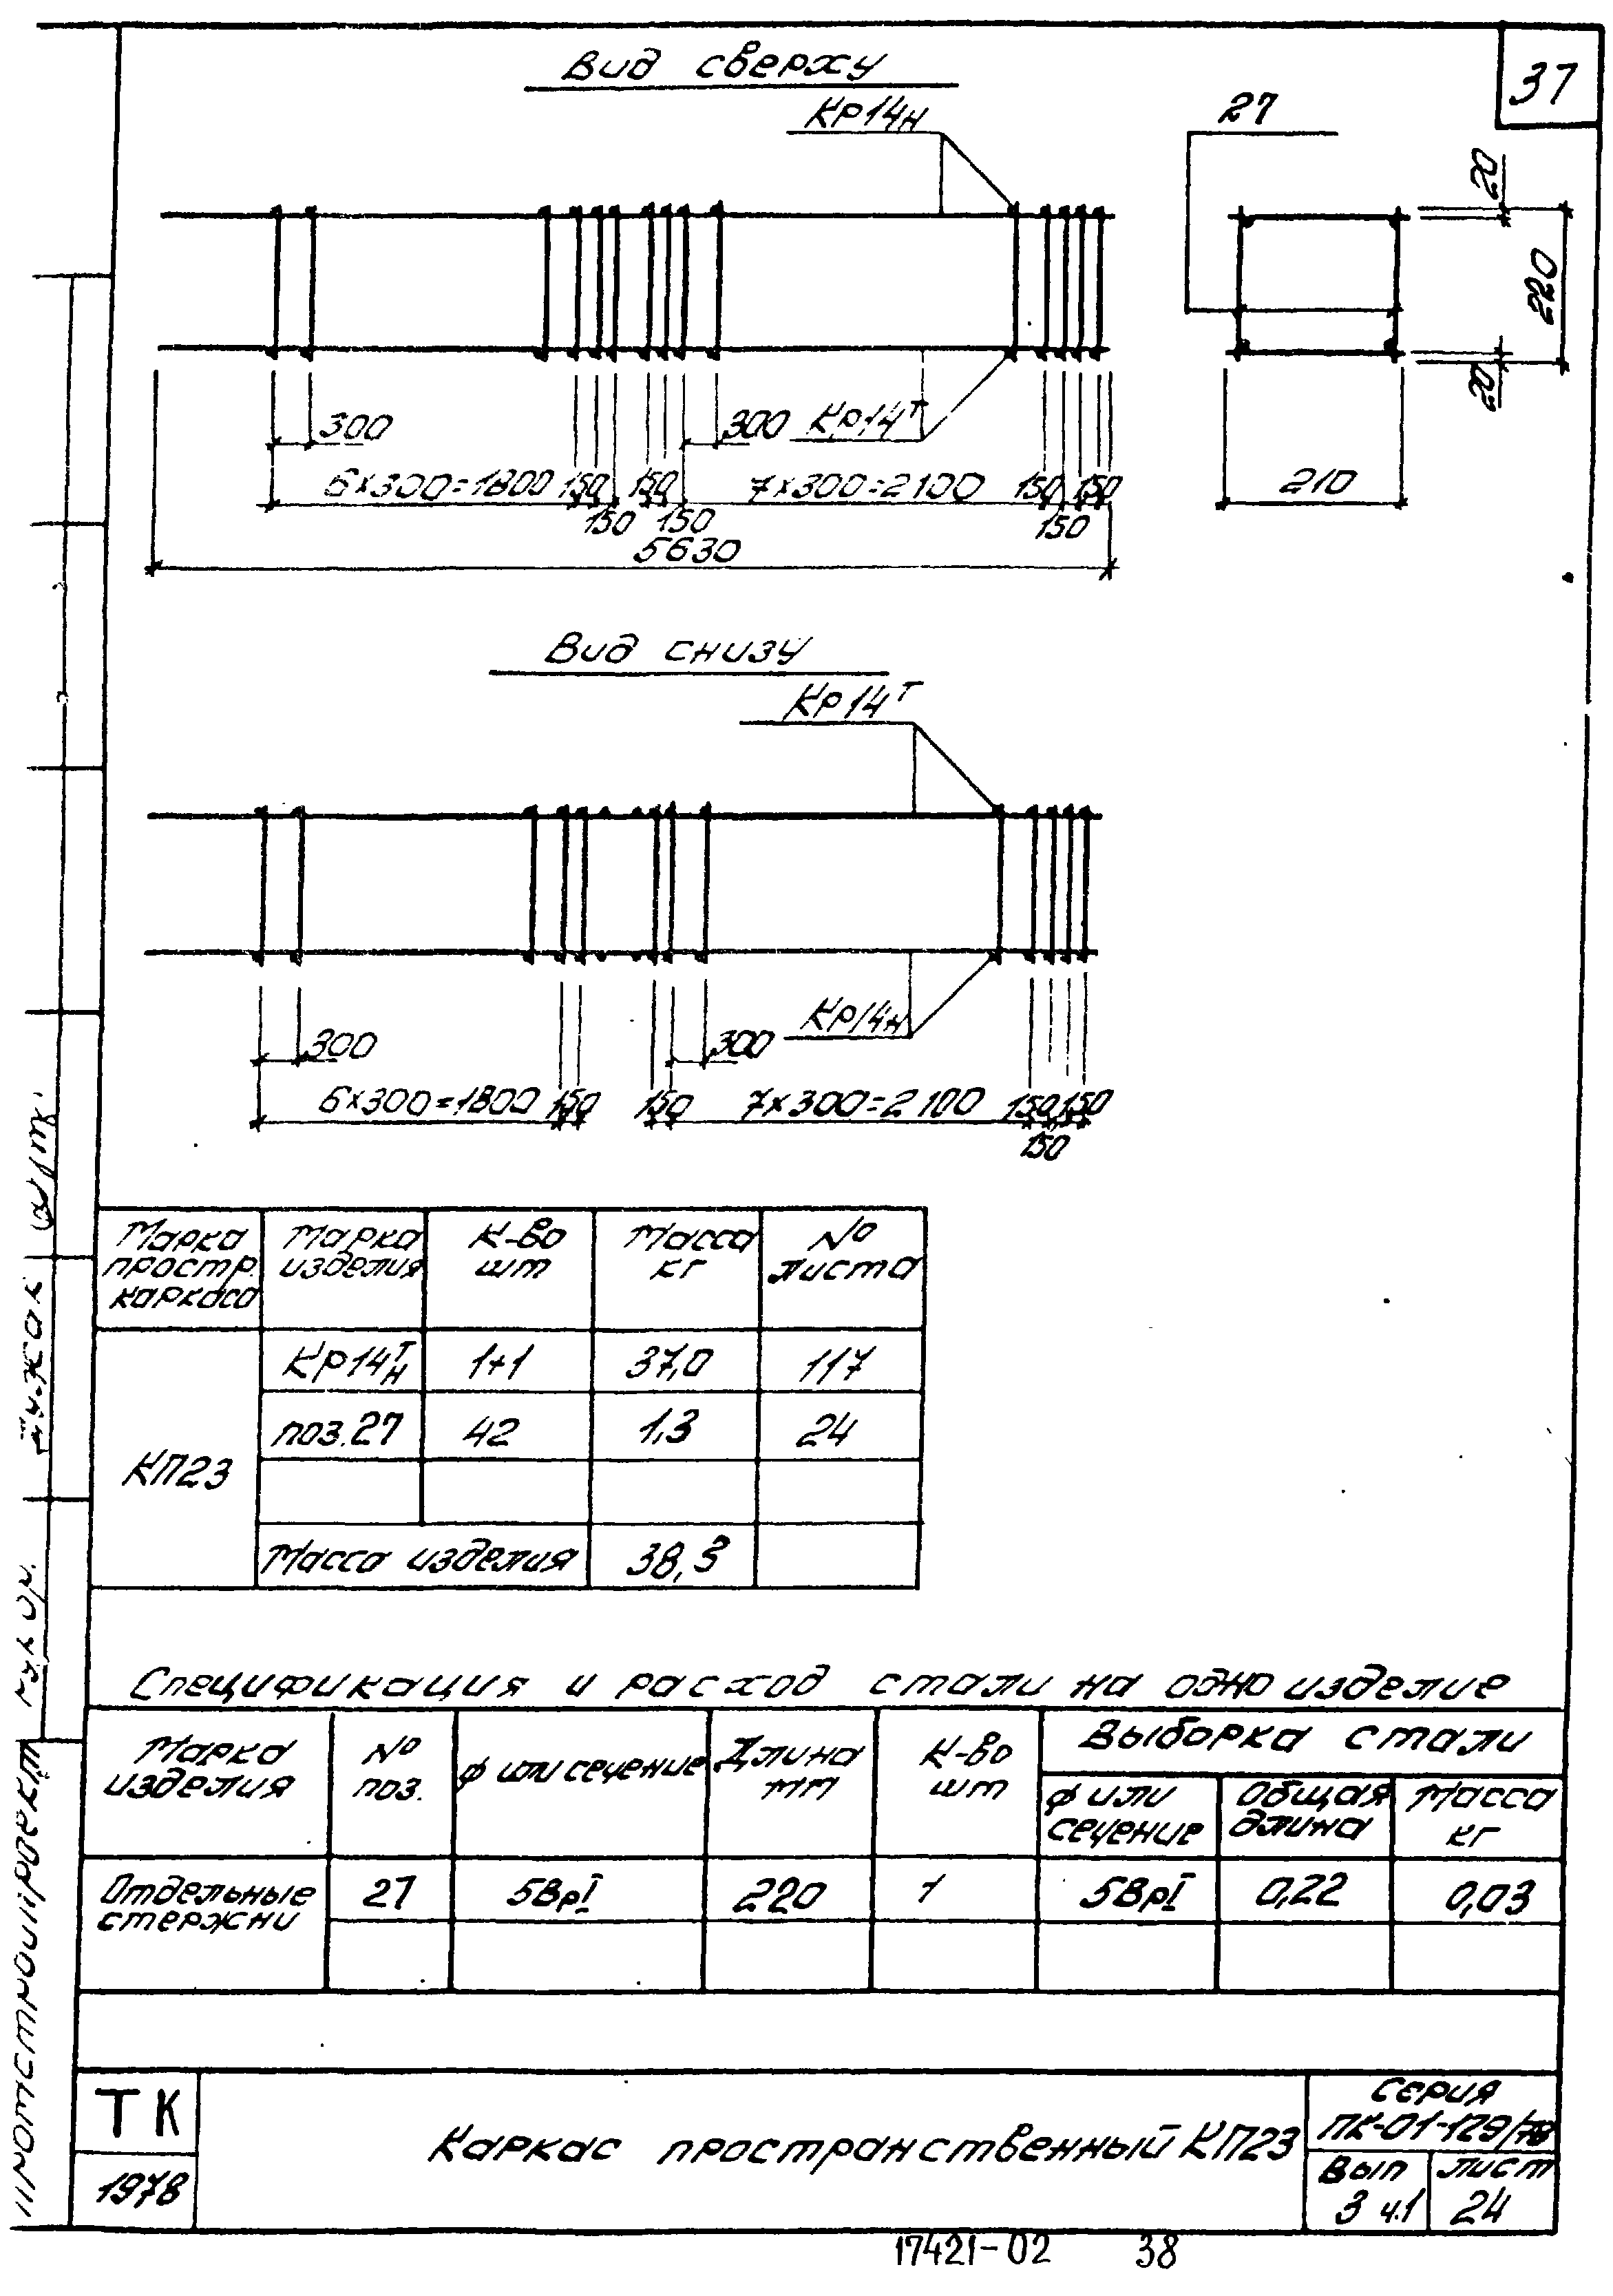 37
Вид сверху
Кр14н
27
20
220
20
210
300
300
Кр14т
6×300=1800
150
150
7×300=2100
150
150
150
150
150
5630
Вид снизу
Кр14т
Кр14н
300
300
6×300=1800
150
150
7×300=2100
150
150
150
Марка простр. каркаса
Марка изделия
К-во шт
Масса кг
№ листа
КП23
Кр14т/н
1+1
37,0
117
поз.27
42
1,3
24
Масса изделия
38,3
Спецификация и расход стали на одно изделие
Марка изделия
№ поз.
ф или сечение
Длина мм
К-во шт
Выборка стали
ф или сечение
Общая длина
Масса кг
Отдельные стержни
27
5ВрI
220
1
5ВрI
0,22
0,03
ТК
1978
Каркас пространственный КП23
Серия
ПК-01-129/78
Вып
3 ч.1
Лист
24
17421-02
38